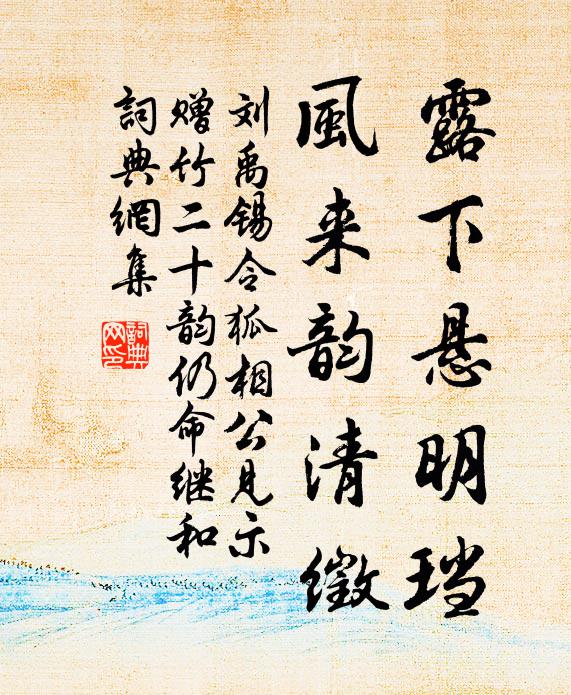 露下悬明珰
風来韵清徵
刘禹锡令狐相公见示
赠竹二十韵仍命继和
詞典網集
詞典
网印